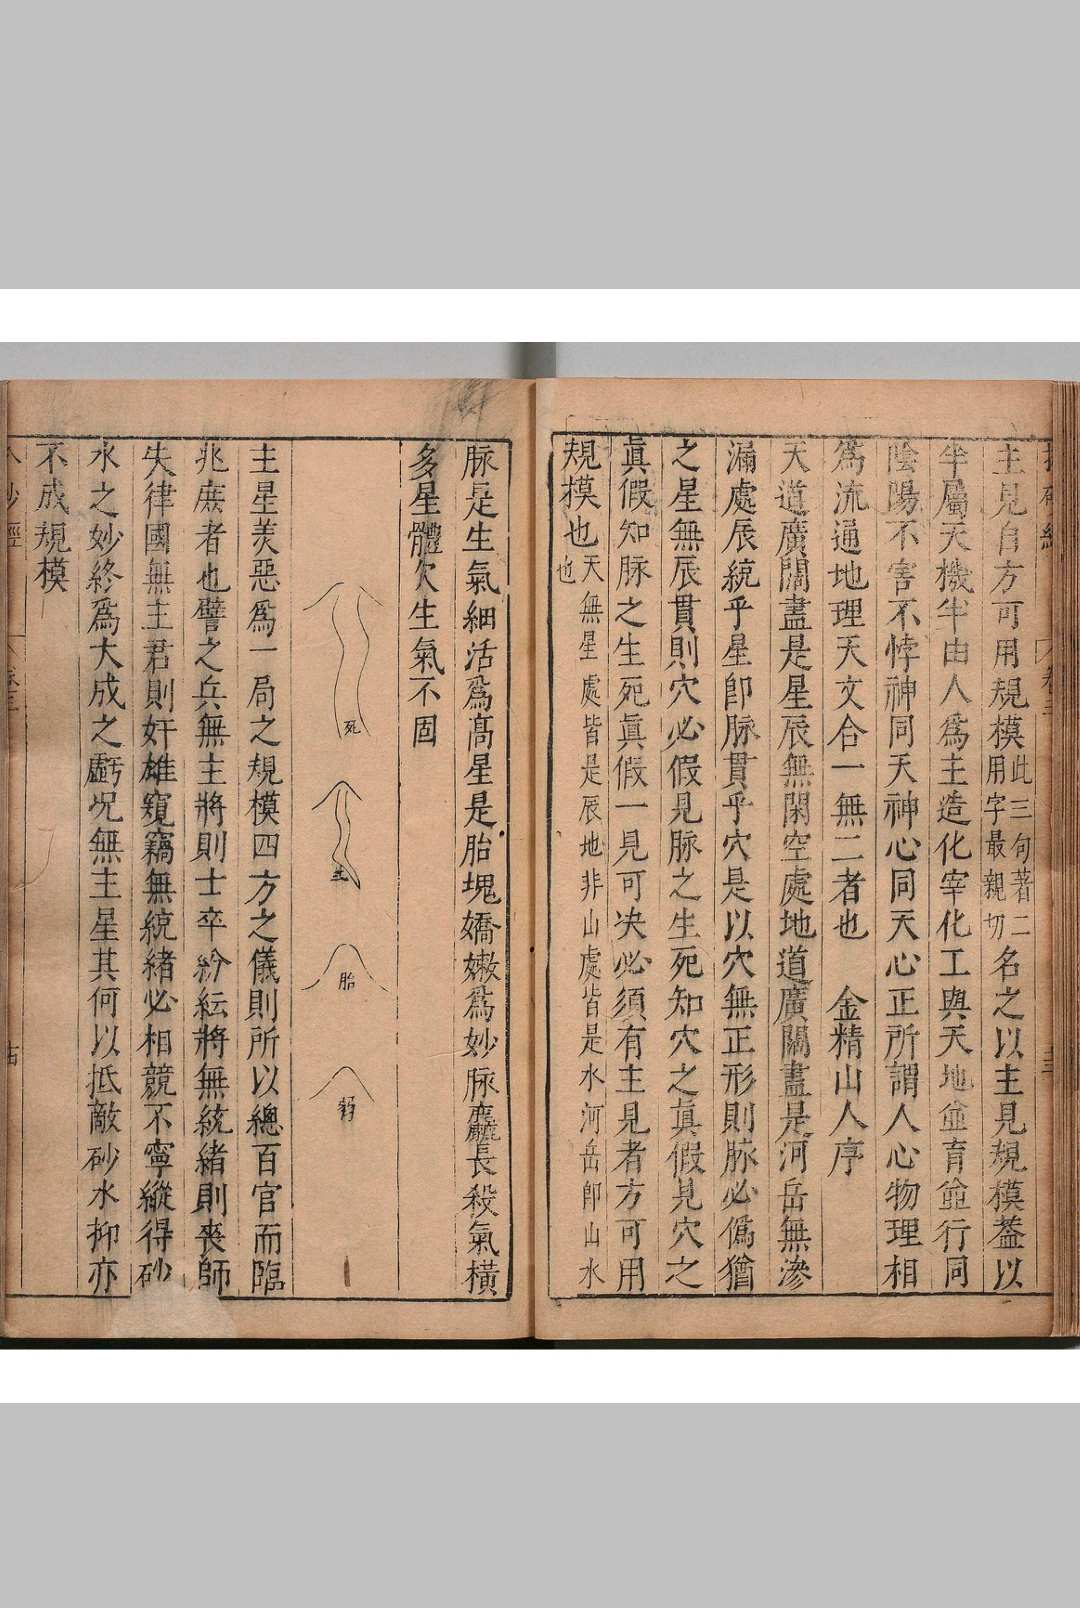 主見自方可用規模此三句著二用字最親切名之以主見規模葢以
半屬天機半由人爲主造化宰化工與天地並育並行同
陰陽不害不悖神同天神心同天心正所謂人心物理相
爲流通地理天文合一無二者也 金精山人序
天道廣闊盡是星辰無閑空處地道廣闊盡是河岳無滲
漏處辰統乎星卽脉貫乎穴是以穴無正形則脉必僞猶
之星無辰貫則穴必假見脉之生死知穴之眞假見穴之
眞假知脉之生死眞假一見可决必須有主見者方可用
規模也天無星處皆是辰地非山處皆是水河岳卽山水也
脉是生氣細活爲高星是胎塊嬌嫩爲妙脉麄長殺氣橫
多星體欠生氣不固
死
生
胎
主星羙惡爲一局之規模四方之儀則所以總百官而臨
兆庶者也譬之兵無主將則士卒紛紜將無統緒則喪師
失律國無主君則奸雄窺竊無統緒必相競不寧縱得砂
水之妙終爲大成之虧况無主星其何以抵敵砂水抑亦
不成規模